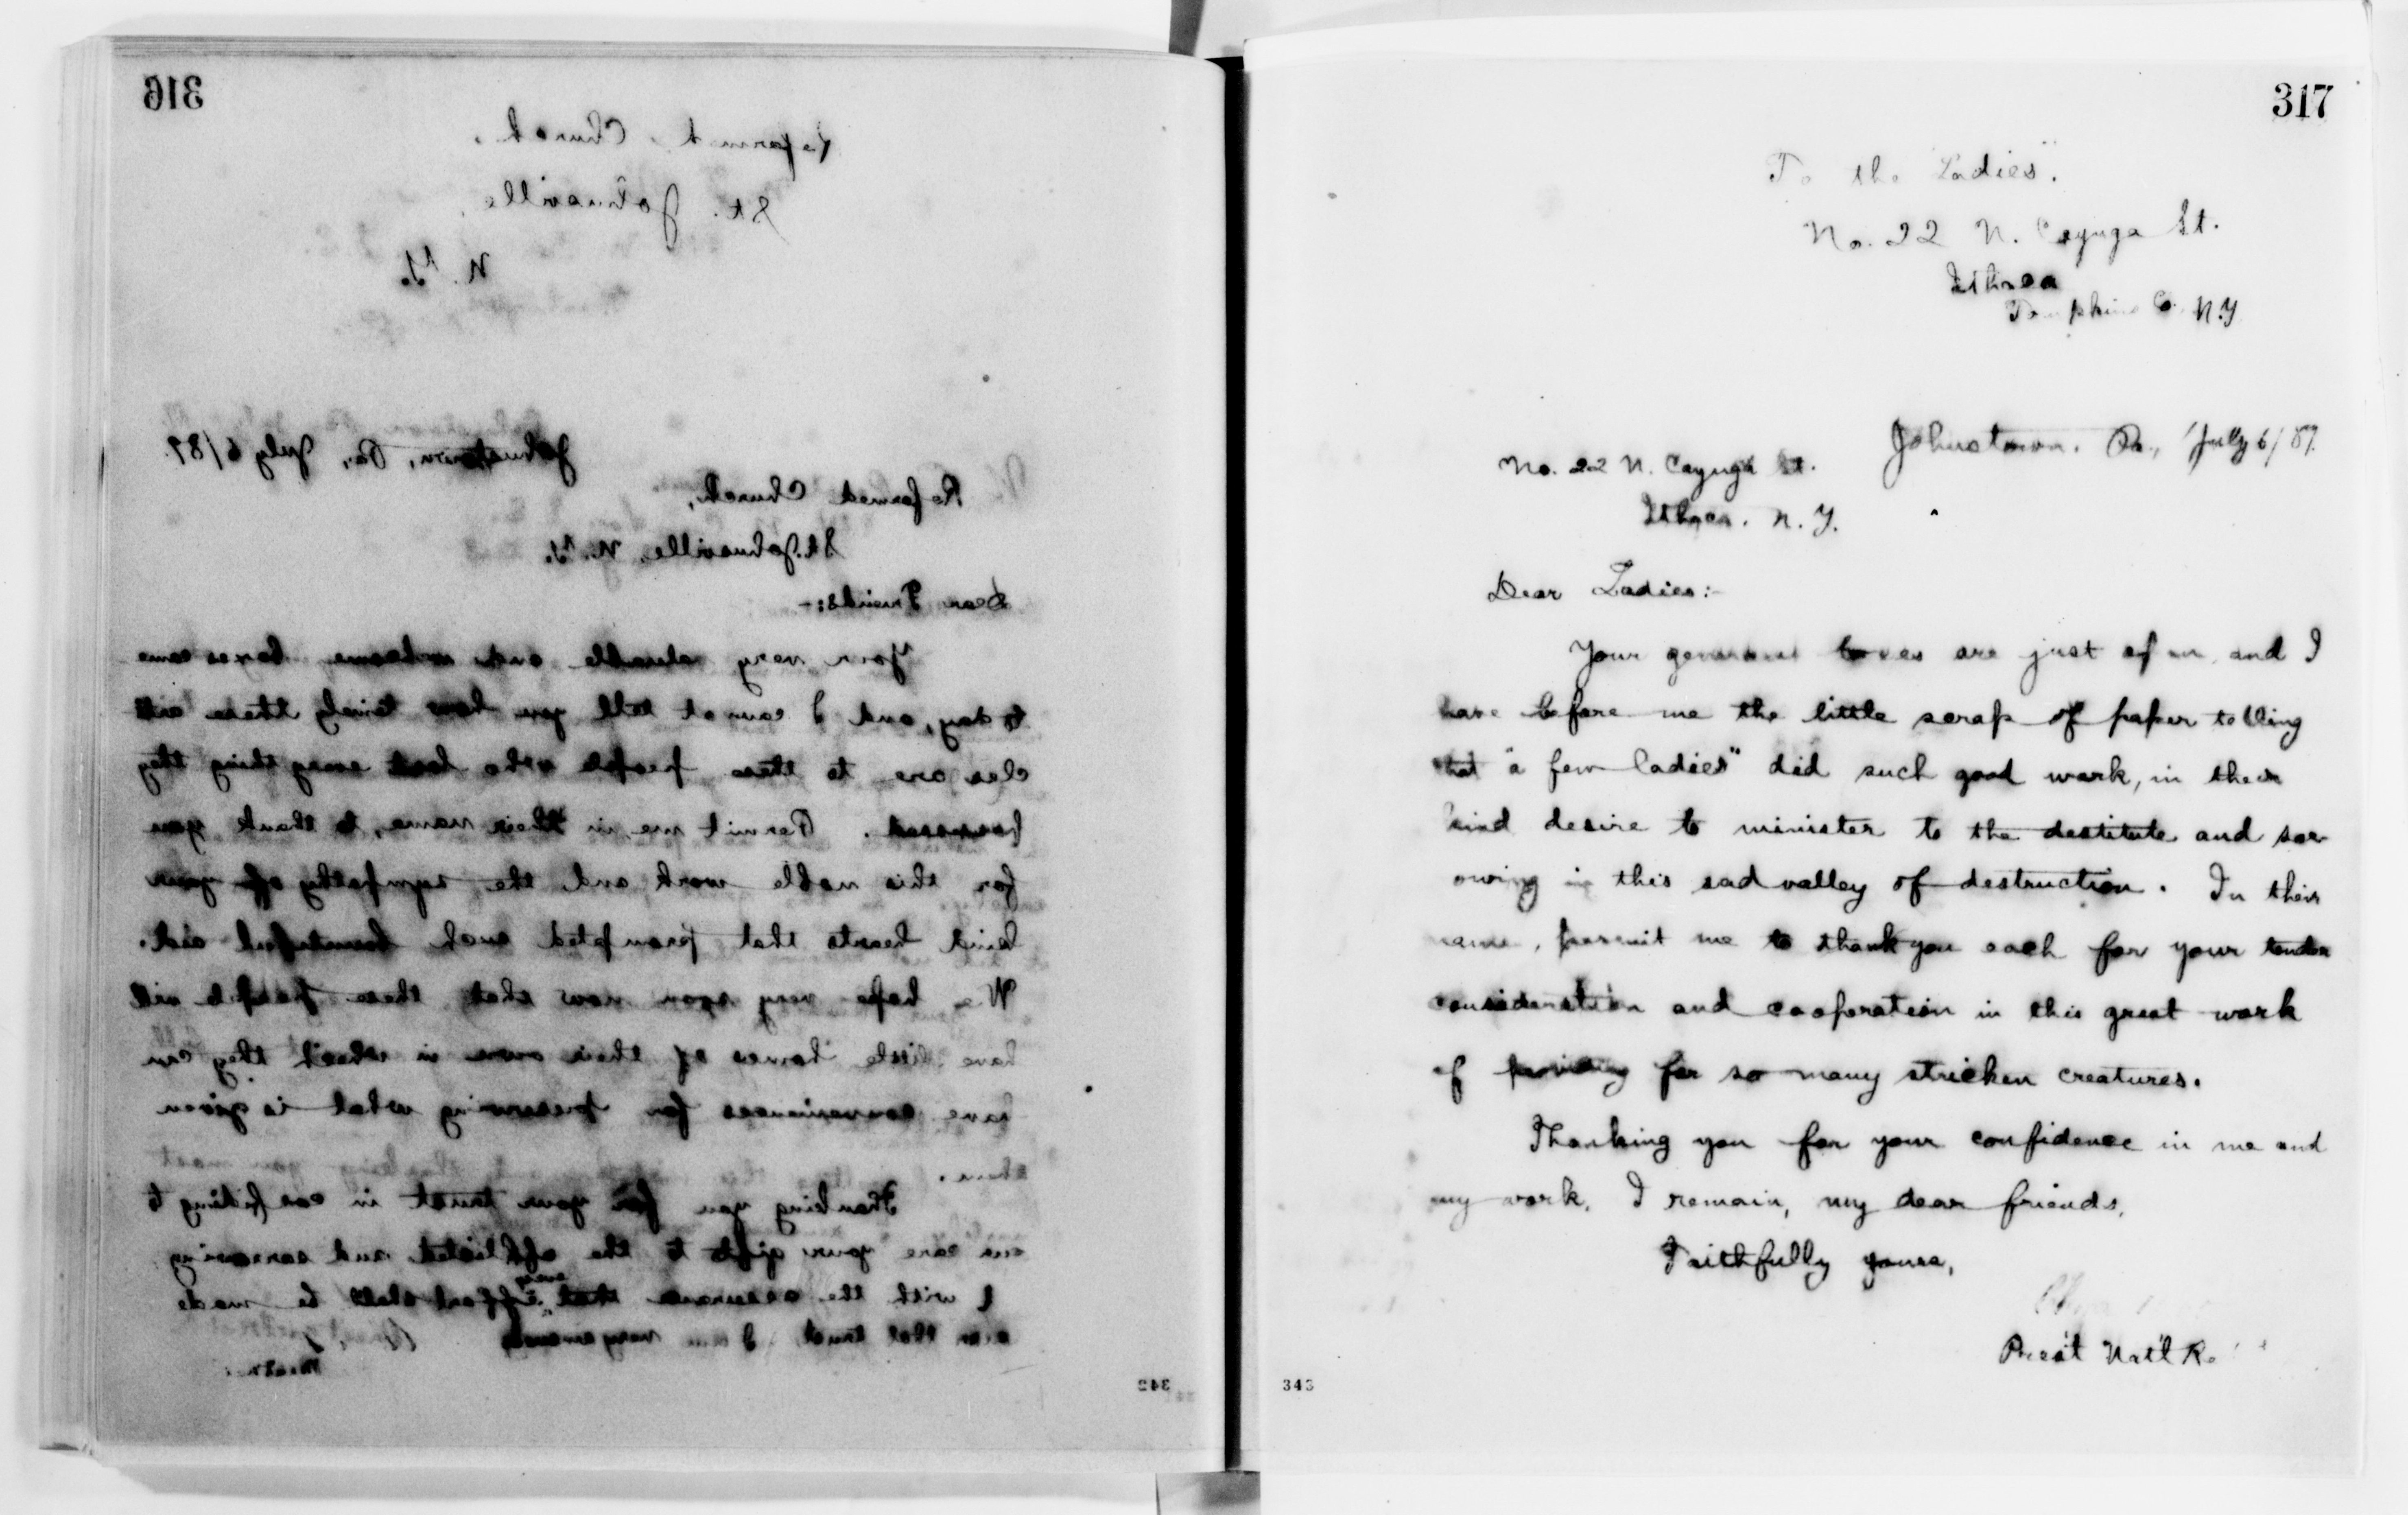 316
Reformed Church,
St. Johnsville,
N.Y.
Johnstown, Pa., July 6/89.
Reformed Church,
St. Johnsville, N.Y.
Dear Friends:-
Your very valuable and welcome boxes came
to day, and I cannot tell you how timely these arti
cles are to these people who lost every thing they
possessed. Permit me, in their name, to thank you
for this noble work and the sympathy of your
kind hearts that prompted such bountiful aid.
We hope very soon now that these people will
have little homes of their own in which they can
have conveniences for preserving what is given
them.
Thanking you for your trust in confiding to
our care your gifts to the afflicted and sorrowing
& with the assurance that every effort shall be made
that trust, I am very sincerely
342
317
To the "Ladies".
No. 22 N. Cayuga St.
Ithaca
Tompkins Co. N.Y
Johnstown, Pa., July 6/89.
No. 22 N. Cayuga St.
Ithaca, N.Y.
Dear Ladies:-
Your generous boxes are just open, and I
have before me the little scrap of paper telling
that "a few ladies" did such good work, in their
kind desire to minister to the destitute and sor
owing in this sad valley of destruction. In their
name, permit me to thank you each for your tender
consideration and cooperation in this great work
of providing for so many stricken creatures.
Thanking you for your confidence in me and
my work, I remain, my dear friends,
Faithfully yours,
Pres't Nat'l
343